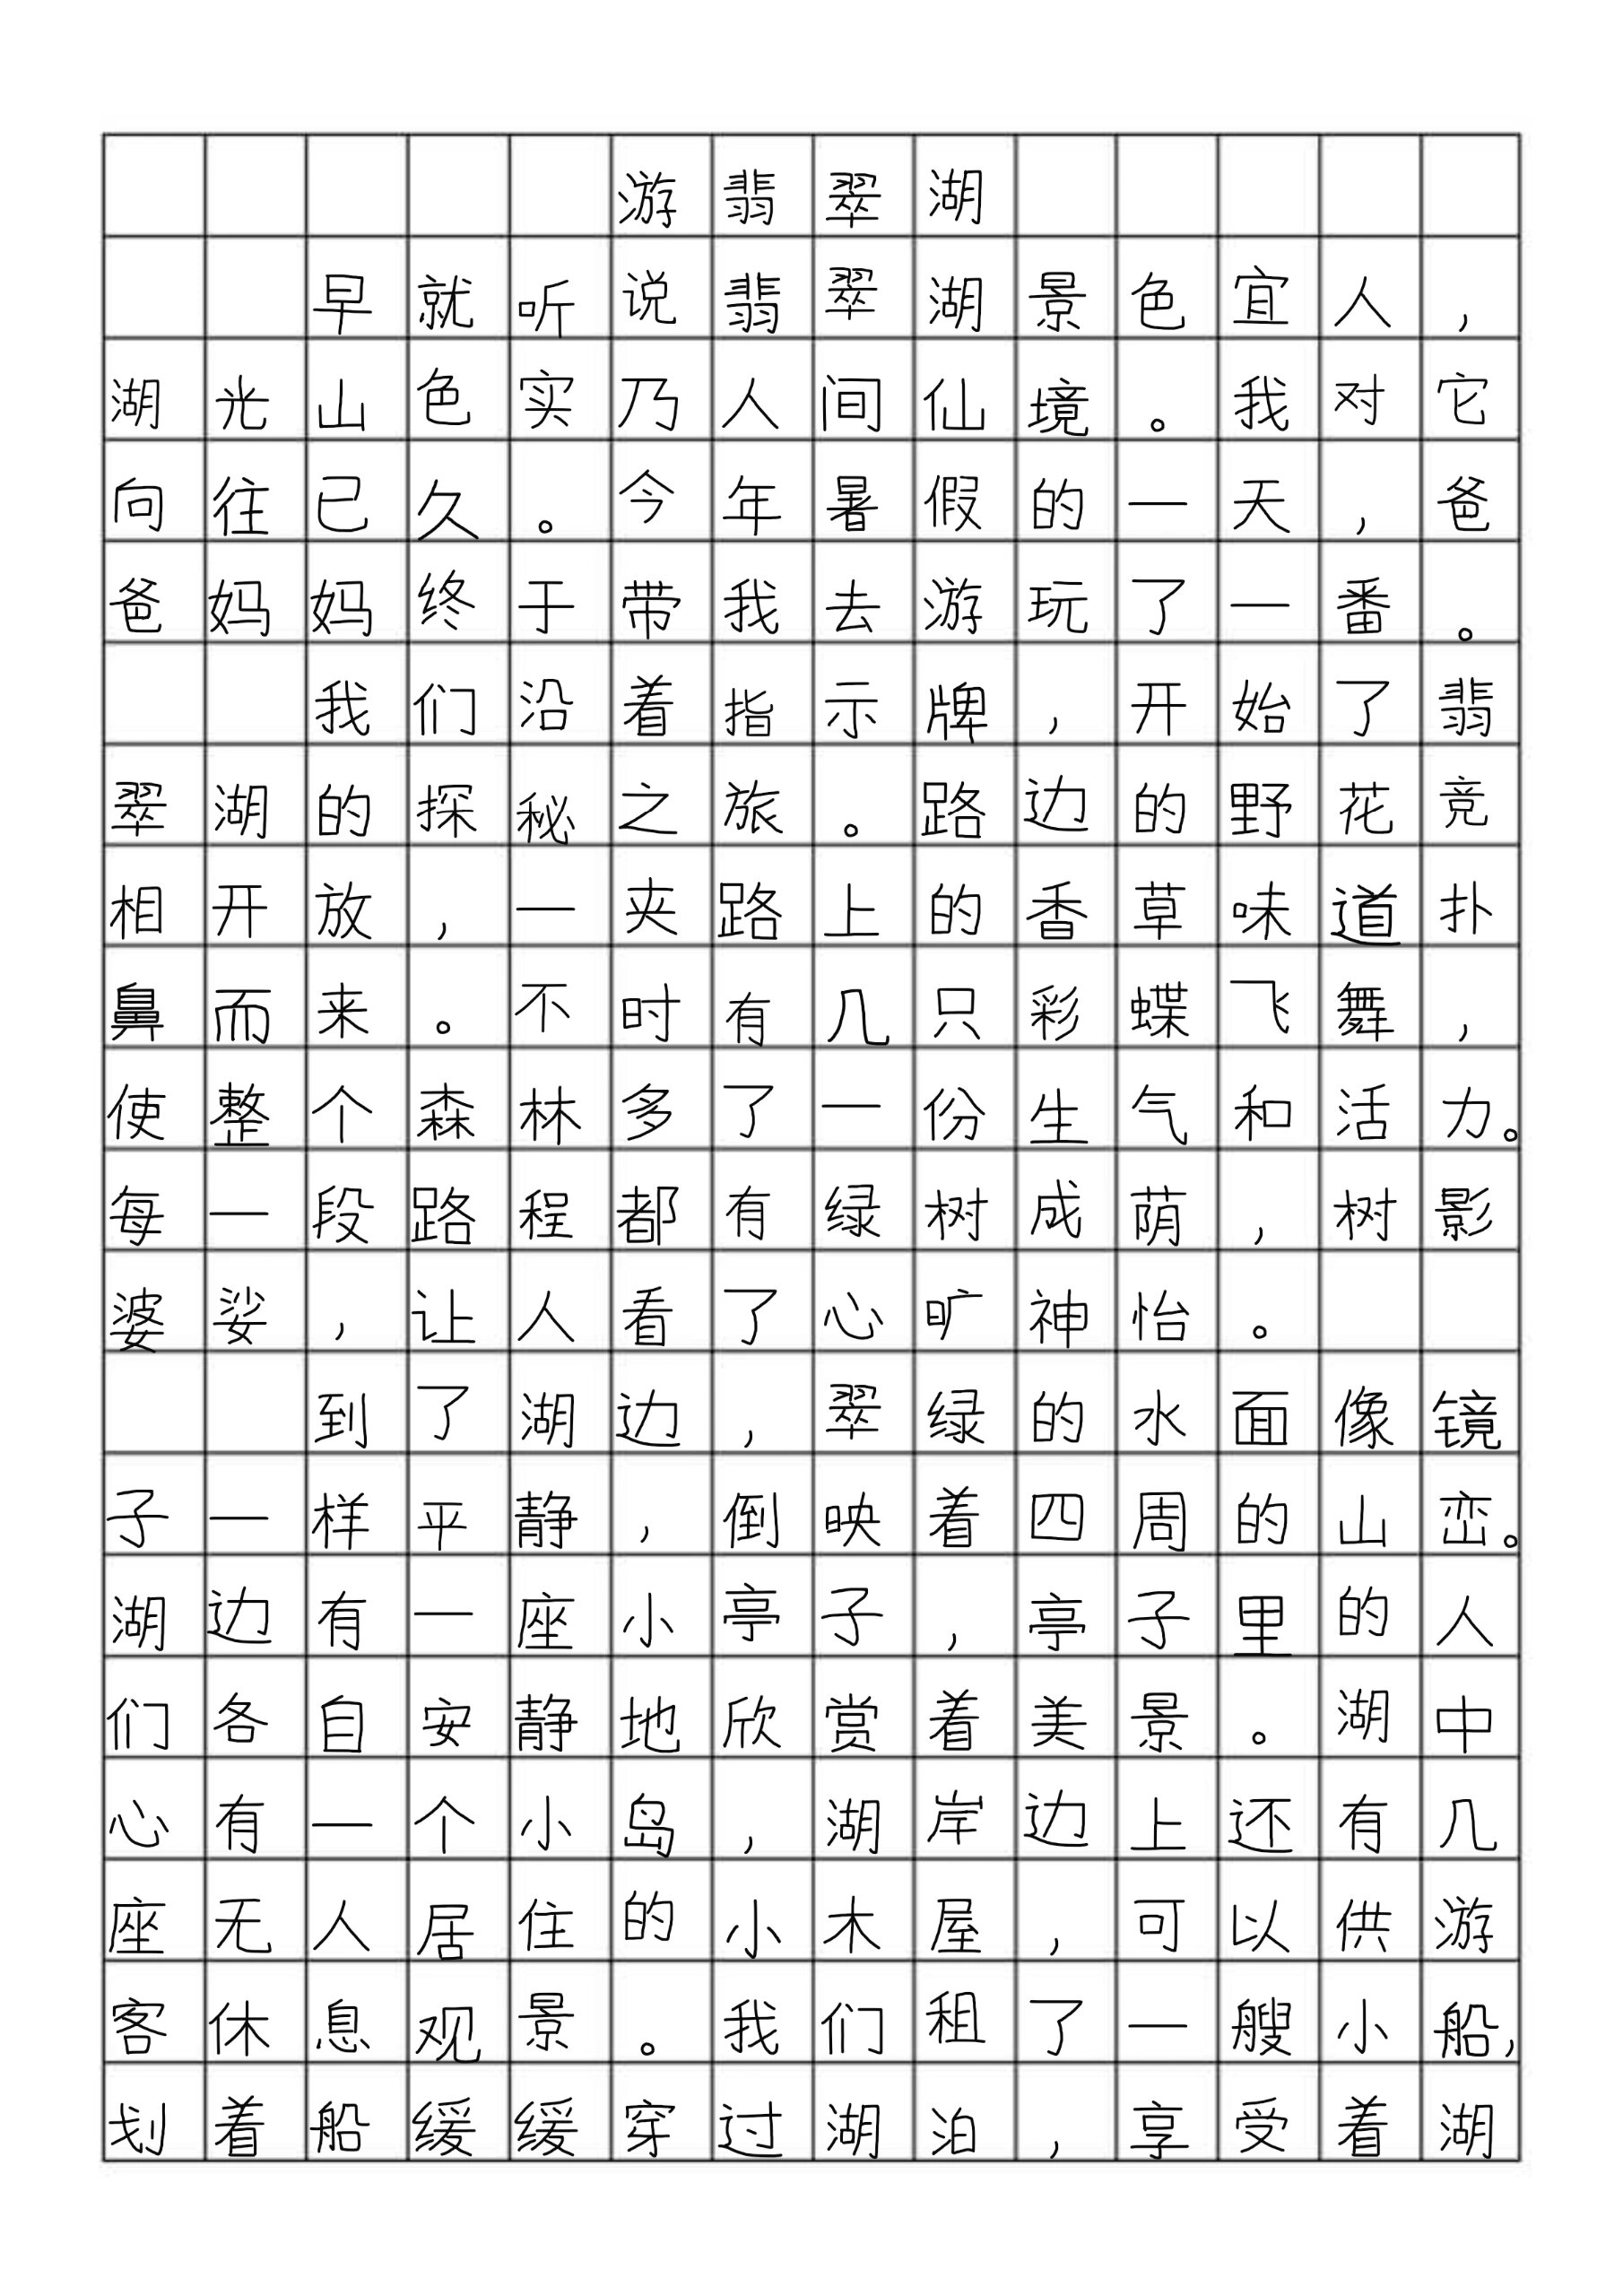 游翡翠湖
早就听说翡翠湖景色宜人，
湖光山色实乃人间仙境。我对它
向往已久。今年暑假的一天，爸
爸妈妈终于带我去游玩了一番。
我们沿着指示牌，开始了翡
翠湖的探秘之旅。路边的野花竞
相开放，一夹路上的香草味道扑
鼻而来。不时有几只彩蝶飞舞，
使整个森林多了一份生气和活力。
每一段路程都有绿树成荫，树影
婆娑，让人看了心旷神怡。
到了湖边，翠绿的水面像镜
子一样平静，倒映着四周的山峦。
湖边有一座小亭子，亭子里的人
们各自安静地欣赏着美景。湖中
心有一个小岛，湖岸边上还有几
座无人居住的小木屋，可以供游
客休息观景。我们租了一艘小船，
划着船缓缓穿过湖泊，享受着湖